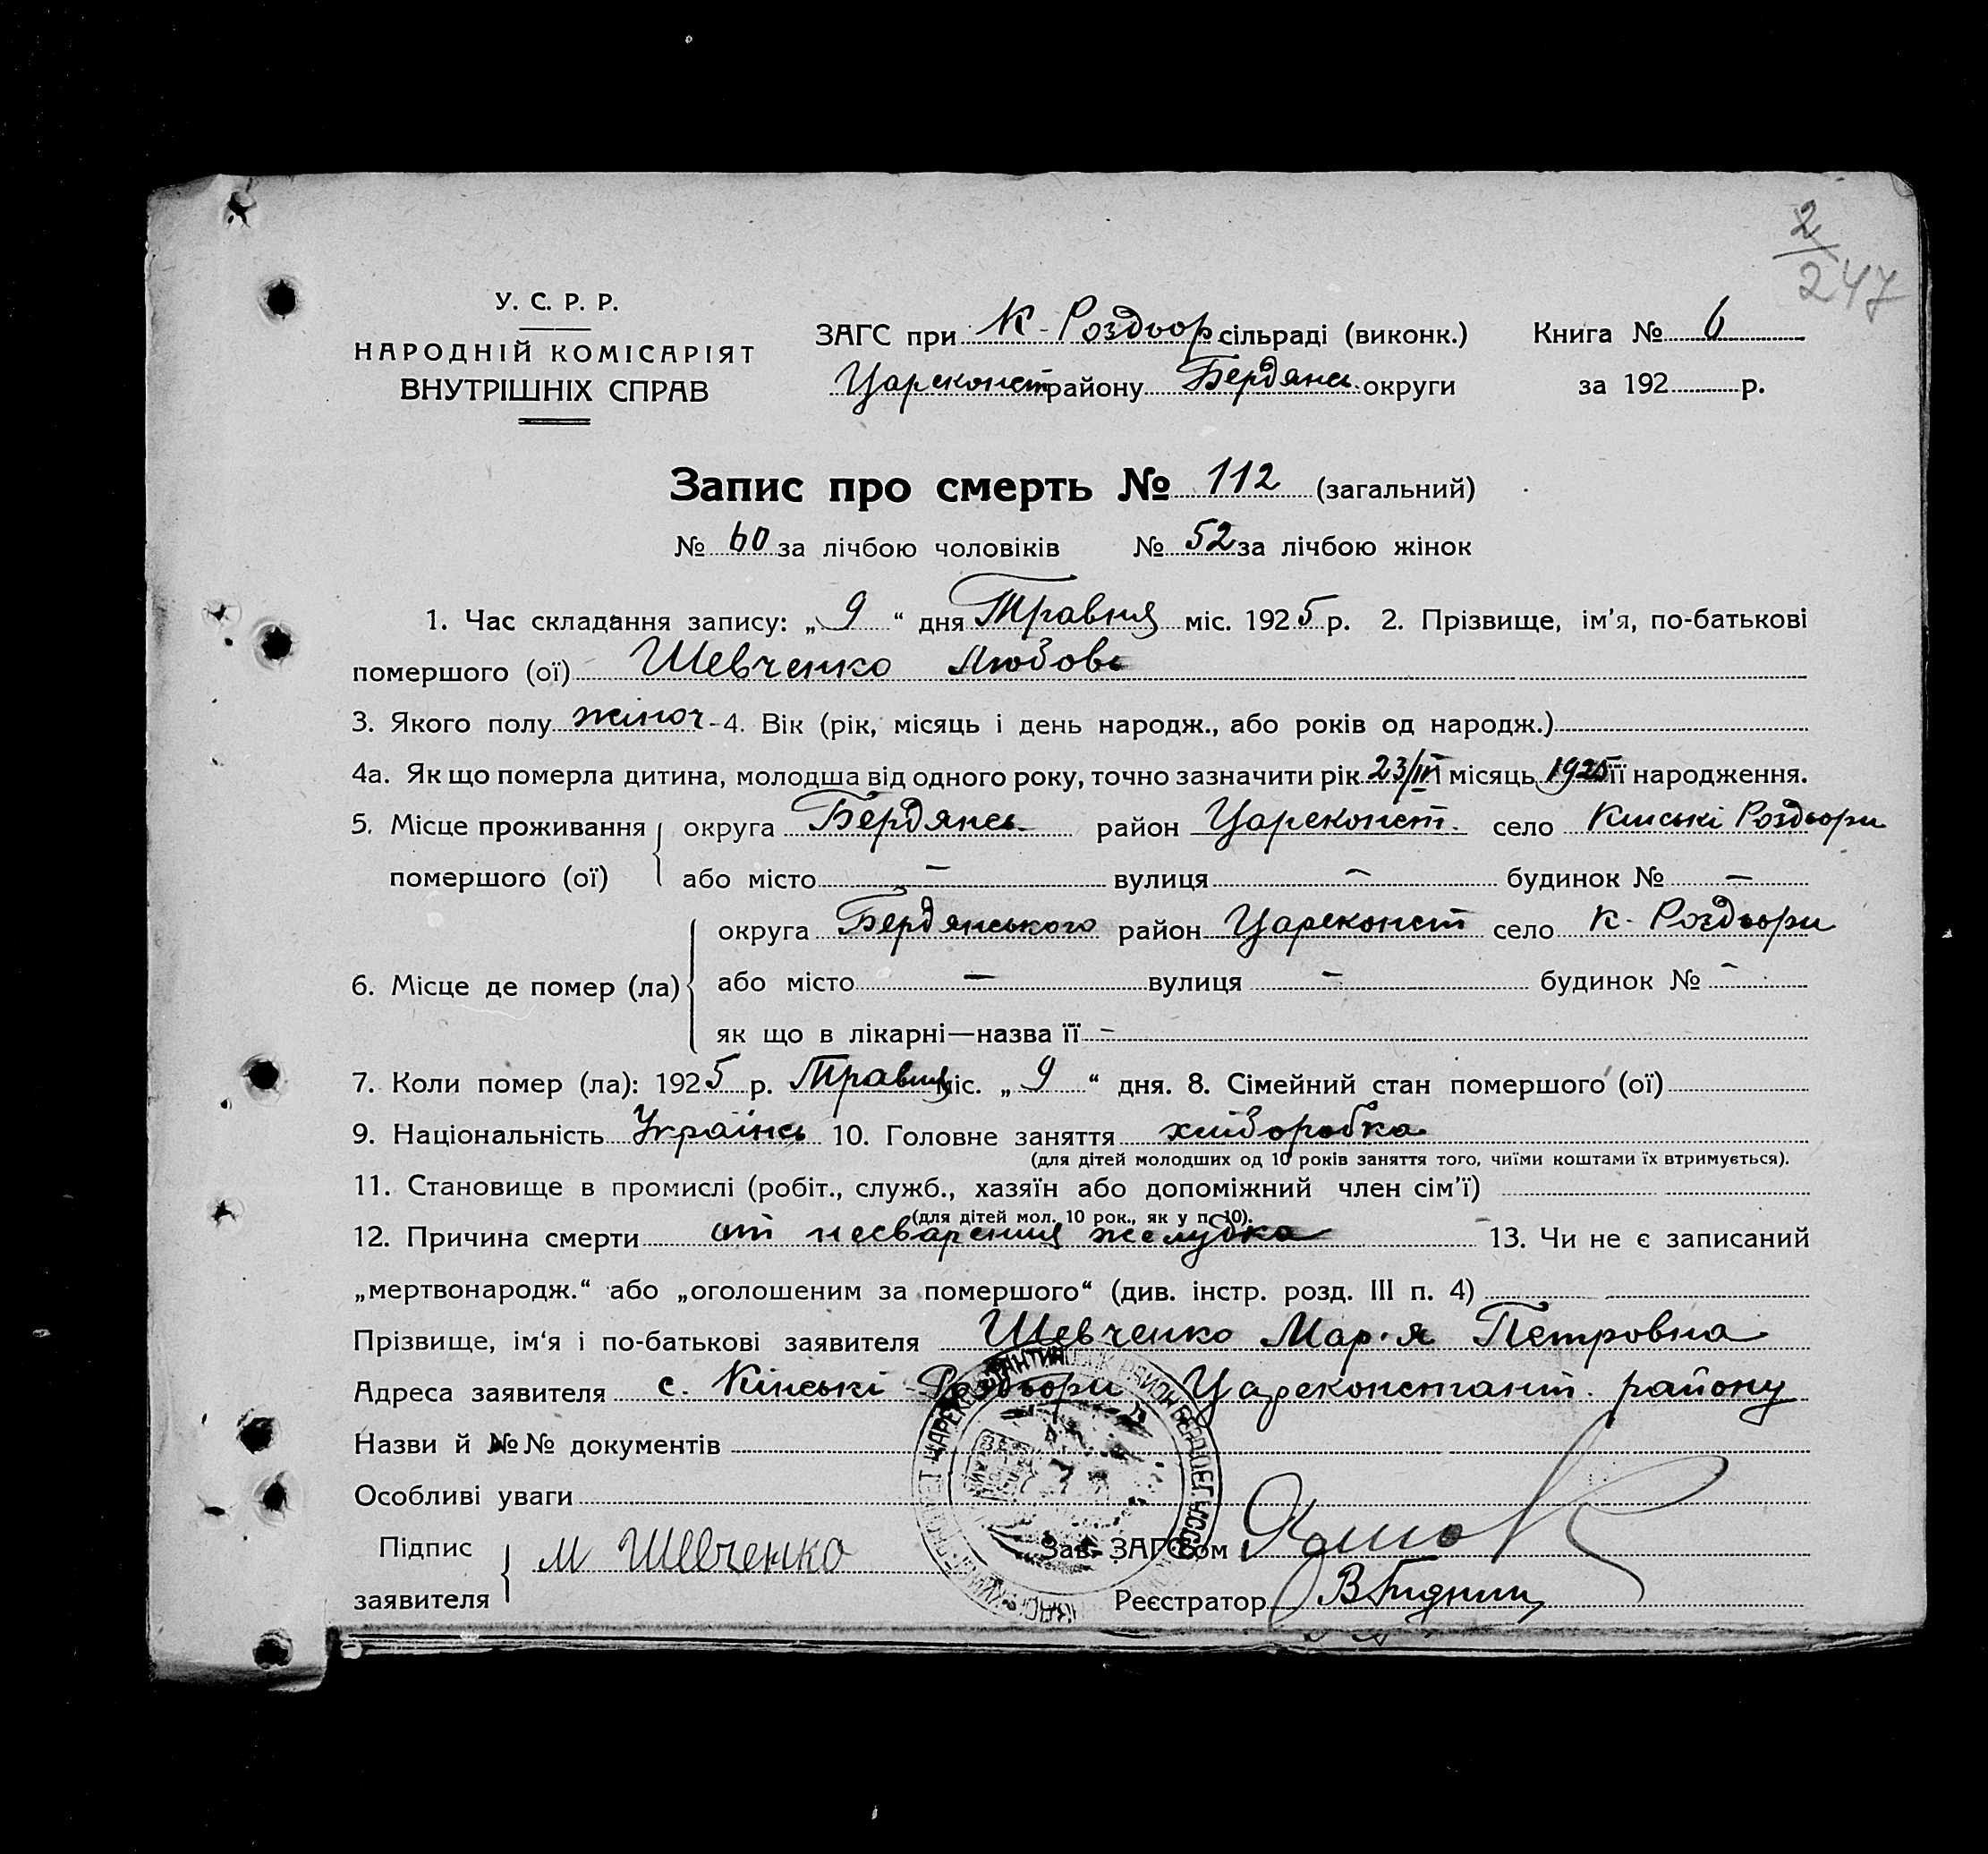 2/247
У. С. Р. Р.
НАРОДНІЙ КОМІСАРІЯТ
ВНУТРІШНІХ СПРАВ
ЗАГС при К-Роздьор сільраді (виконк.) Книга № 6
Цареконст району Бердянсь. округи за 192 р.
Запис про смерть № 112 (загальний)
№ 60 за лічбою чоловіків № 52 за лічбою жінок
1. Час складання запису: „ 9 “ дня Травня міс. 1925 р. 2. Прізвище, ім’я, по-батькові
помершого (ої) Шевченко Любовь
3. Якого полу жіноч - 4. Вік (рік, місяць і день народж., або років од народж.)
4а. Як що померла дитина, молодша від одного року, точно зазначити рік 23/III місяць 1925 її народження.
5. Місце проживання округа Бердянсь. район Цареконст. село Кинські Роздьори
помершого (ої) або місто — вулиця — будинок № —
округа Бердянського район Цареконст село К-Роздьори
6. Місце де помер (ла) або місто — вулиця — будинок № -
як що в лікарні—назва її -
7. Коли помер (ла): 1925 р. Травня міс. „ 9 “ дня. 8. Сімейний стан помершого (ої)
9. Національність Українсь 10. Головне заняття хліборобка
(для дітей молодших од 10 років заняття того, чиїми коштами їх втримується).
11. Становище в промислі (робіт., служб., хазяїн або допоміжний член сім’ї)
(для дітей мол. 10 рок., як у п. 10).
12. Причина смерти от несварения желудка 13. Чи не є записаний
„мертвонародж.“ або „оголошеним за помершого“ (див. інстр. розд. III п. 4)
Прізвище, ім‘я і по-батькові заявителя Шевченко Мар·я Петровна
Адреса заявителя с. Кінські Роздьори Цареконстант. району
Назви й №№ документів
Особливі уваги
Підпис М Шевченко Зав. ЗАГСом
заявителя Реєстратор